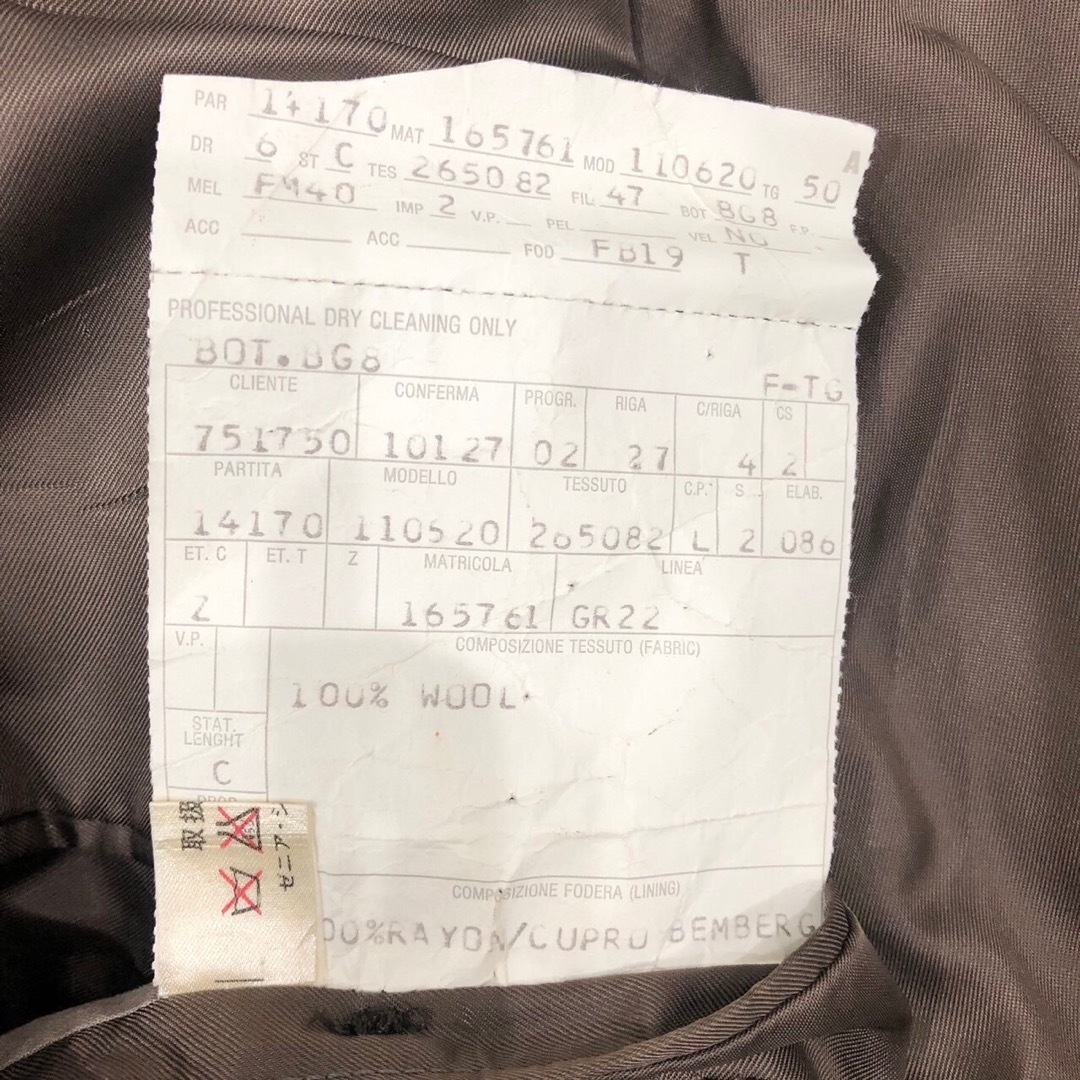 PAR 14170 MAT 165761 MOD 110620 TG 50 A
DR 6 ST C TES 265082 FIL 47 BOT BG8 F.P.
MEL FM40 IMP 2 V.P. PEL VEL NO
ACC ACC FOD FB19 T
PROFESSIONAL DRY CLEANING ONLY
BOT.BG8 F-TG
CLIENTE CONFERMA PROGR. RIGA C/RIGA CS
751750 10127 02 27 4 2
PARTITA MODELLO TESSUTO C.P. S ELAB.
14170 110620 265082 L 2 086
ET. C ET. T Z MATRICOLA LINEA
2 165761 GR22
V.P. COMPOSIZIONE TESSUTO (FABRIC)
100% WOOL
STAT.
LENGHT
C
COMPOSIZIONE FODERA (LINING)
00%RAYON/CUPRO BEMBERG
取扱
ゼニア・